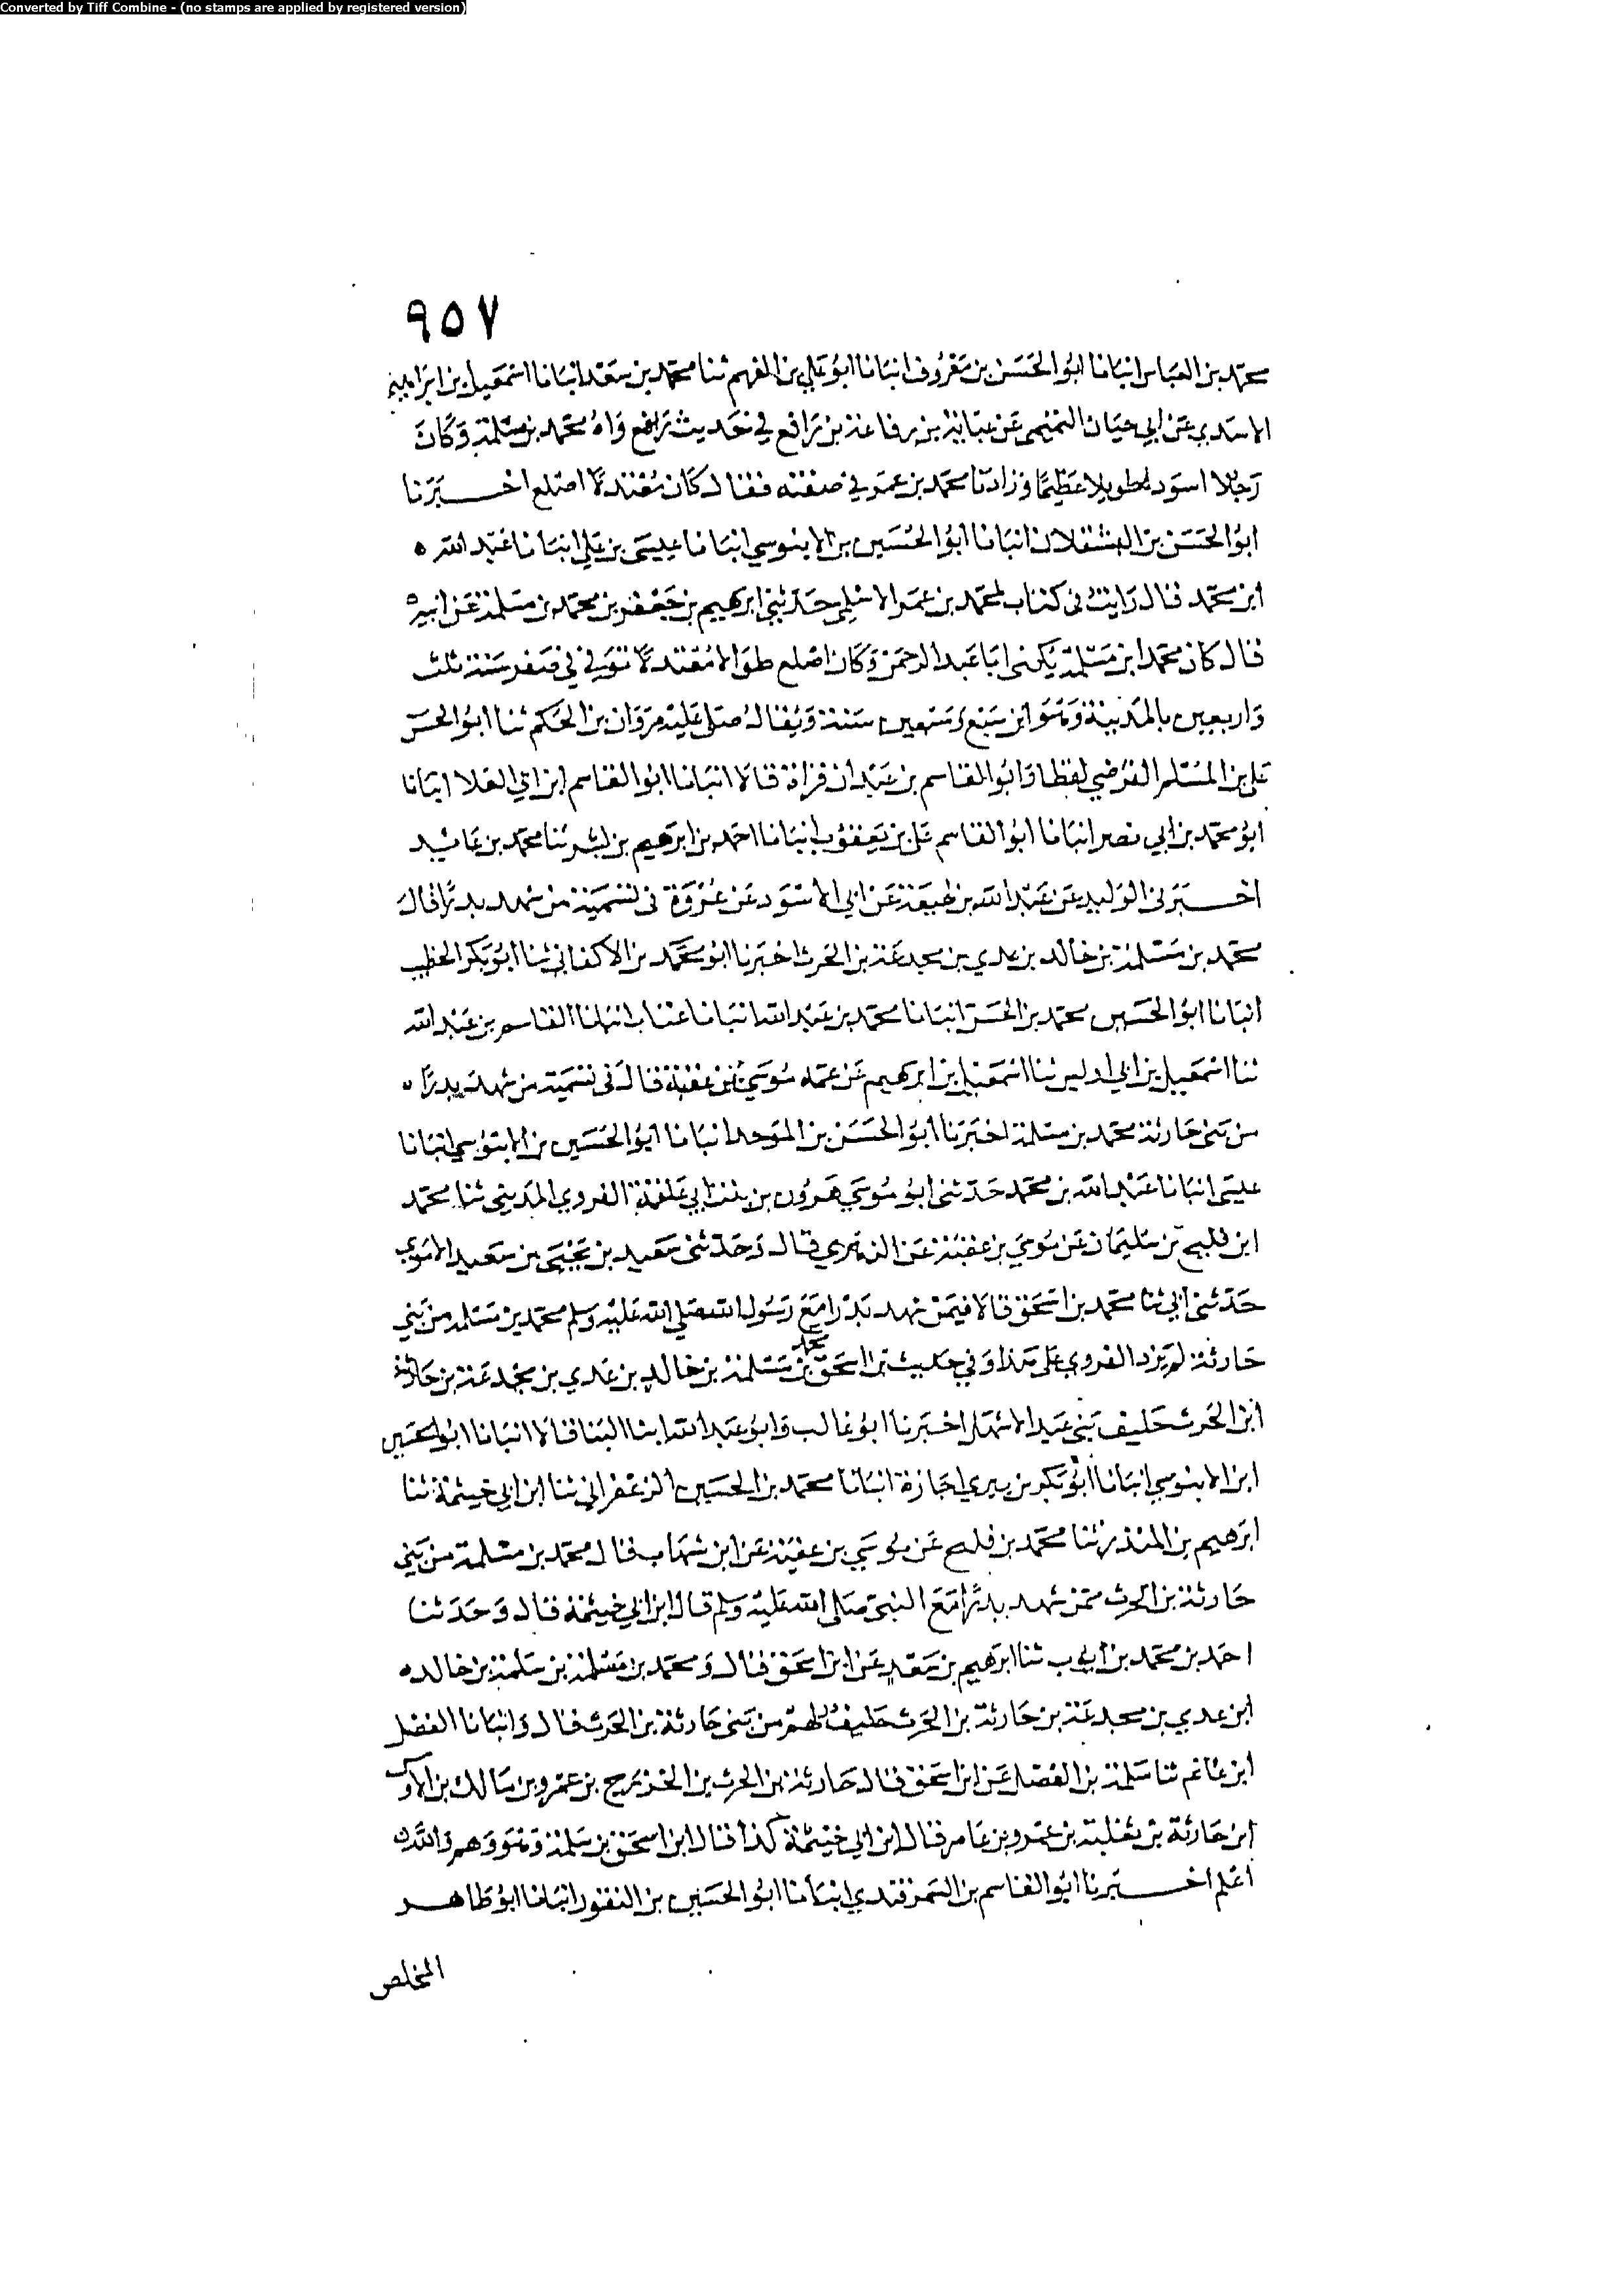 Converted by Tiff Combine - (no stamps are applied by registered version)
٩٥٧
محمد بن العباس انبانا ابو الحسن بن معروف انبانا ابو علي بن الفهم ثنا محمد بن سعد انبانا اسمعيل بن ابراهيم
الاسدي عن ابي حيان التيمي عن عباية بن رفاعة بن رافع في حديث رافع واه محمد بن مسلمة وكان
رجلا اسود طويلا عظيما وزادنا محمد بن عمر في صفته فقال كان معتدلا اصلع اخبرنا
ابو الحسن بن انبانا ابو الحسين بن الابنوسي انبانا عيسى بن علي انبانا عبد الله
ابن محمد قال رايت في كتاب محمد بن عمر الاسلمي حدثني ابرهيم بن جعفر بن محمد بن مسلمة عن ابيه
قال كان محمد ابن مسلمة يكنى ابا عبد الرحمن وكان اصلع طوالا معتدلا توفي في صفر سنة ثلث
واربعين بالمدينة وهو ابن سبع وسبعين سنة ويقال صلى عليه مروان بن الحكم ثنا ابو الحسن
علي بن المسلم الفرضي لفظا وابو القاسم بن عبدان قراة قالا انبانا ابو القاسم ابن ابي العلا انبانا
ابو محمد بن ابي نصر انبانا ابو القاسم علي بن يعقوب انبانا احمد بن ابرهيم بن بشر ثنا محمد بن عائيد
اخبرني الوليد عن عبد الله بن لهيعة عن ابي الاسود عن عروة في تسمية من شهد بدرا قال
محمد بن مسلمة بن خالد بن عدي بن مجدعة بن الحرث اخبرنا ابو محمد بن الاكفاني ثنا ابو بكر الخطيب
انبانا ابو الحسين محمد بن الحسن انبانا محمد بن عبد الله انبانا عتاب انبانا القاسم بن عبد الله
ثنا اسمعيل بن ابي اويس ثنا اسمعيل بن ابرهيم عن عمه موسى بن عقبة قال في تسمية من شهد بدرا
من بني حارثة محمد بن مسلمة اخبرنا ابو الحسن بن الموحد انبانا ابو الحسين بن الابنوسي انبانا
عيسى انبانا عبد الله بن محمد حدثني ابو موسى هرون بن ابي علقمة الفروي المديني ثنا محمد
ابن فليح بن سليمان عن موسى بن عقبة عن الزهري قال وحدثني سعيد بن يحيى بن سعيد الاموي
حدثني ابي ثنا محمد بن اسحق قالا فيمن شهد بدرا مع رسول الله صلى الله عليه وسلم محمد بن مسلمة من بني
حارثة لم يزد الفروي على هذا وفي حديث ابن اسحق محمد بن مسلمة بن خالد بن عدي بن مجدعة بن حارثة
ابن الحرث حليف بني عبد الاشهل اخبرنا ابو غالب وابو عبد الله ابنا البنا قالا انبانا ابو الحسين
ابن الابنوسي انبانا ابو بكر بن بيري اجازة انبانا محمد بن الحسين الزعفراني ثنا ابن ابي خيثمة ثنا
ابرهيم بن المنذر ثنا محمد بن فليح عن موسى بن عقبة عن ابن شهاب قال محمد بن مسلمة من بني
حارثة بن الحرث ممن شهد بدرا مع النبي صلى الله عليه وسلم قال ابن ابي خيثمة قال وحدثنا
احمد بن محمد بن ايوب ثنا ابرهيم بن سعد عن ابن اسحق قال ومحمد بن مسلمة بن سلمة بن خالد
ابن عدي بن مجدعة بن حارثة بن الحرث حليف لهم من بني حارثة بن الحرث قال وانبانا الفضل
ابن غانم ثنا سلمة بن الفضل عن ابن اسحق قال حارثة بن الحرث بن الخزرج بن عمرو بن مالك بن الاوس
ابن حارثة بن ثعلبة بن عمرو بن عامر قال ابن ابي خيثمة كذا قال ابن اسحق بن سلمة وهو وهم والله
اعلم اخبرنا ابو القاسم بن السمرقندي انبانا ابو الحسين بن النقور انبانا ابو طاهر
المخلص